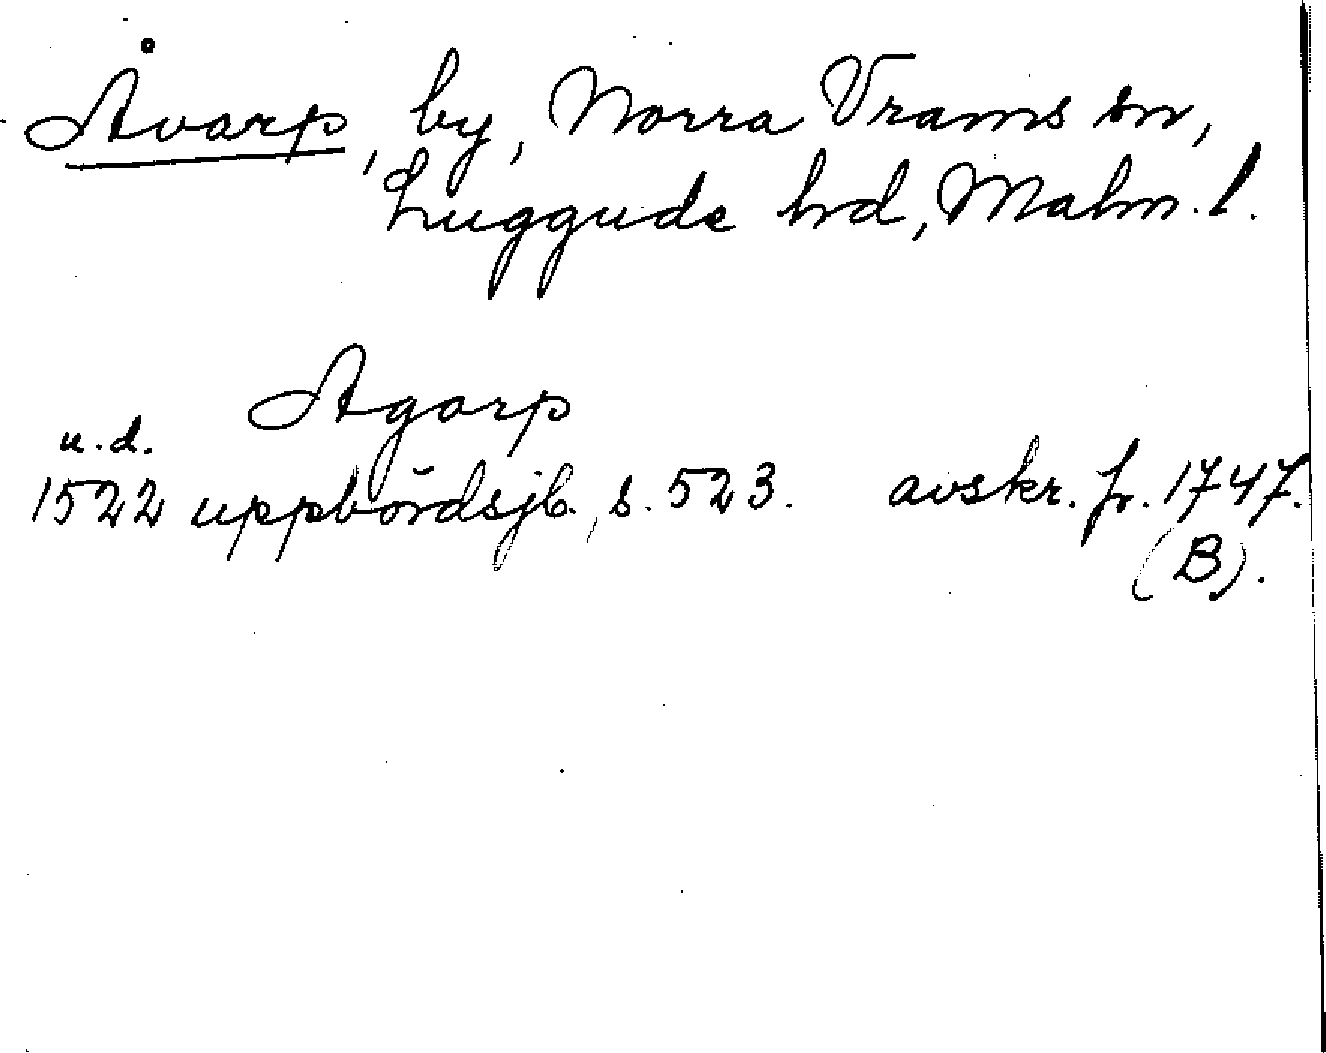 Åvarp, by, Norra Vrams sn,
Luggude hd, Malm. l.
Agarp
u.d.
1522 uppbördsjb., s. 523. avskr. fr. 1747.
(B).